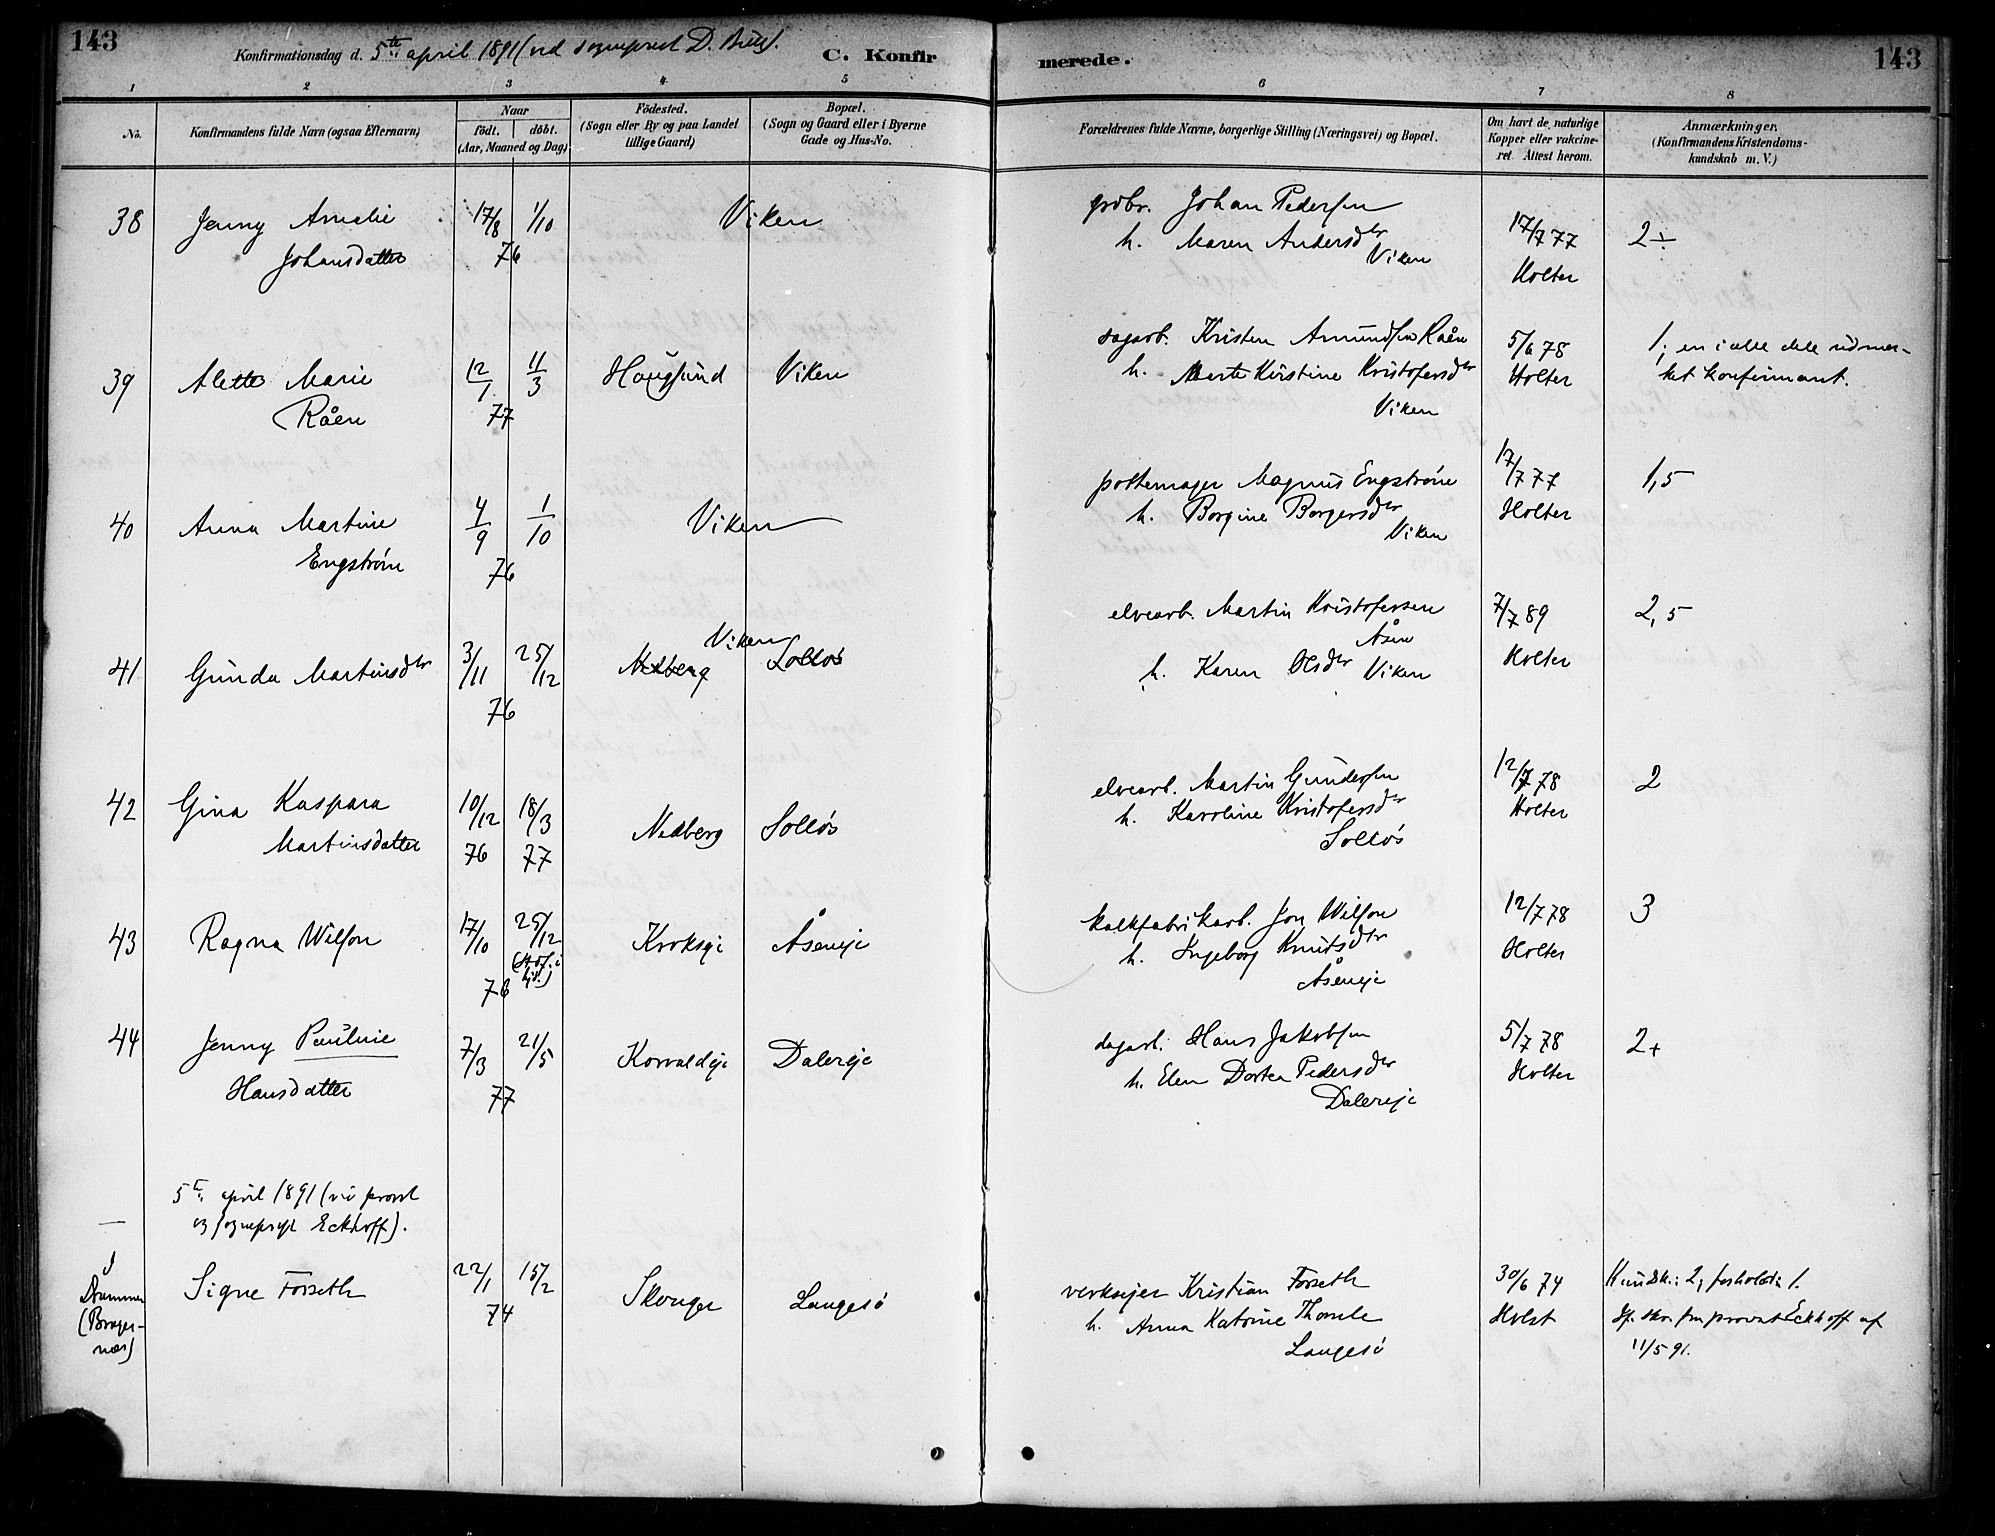 143
Konfirmationsdag d. 5te april 1891 (ved sogneprest D.
C. Konfirmerede.
143
1 2 3 4 5 6 7 8
No.
Konfirmandens fulde Navn (ogsaa Efternavn)
Naar
födt. döbt.
(Aar, Maaned og Dag)
Födested.
(Sogn eller By og paa Landet
tillige Gaard)
Bopæl.
(Sogn og Gaard eller i Byerne
Gade og Hus-No.
Forældrenes fulde Navne, borgerlige Stilling (Næringsvei) og Bopæl.
Om havt de naturlige
Kopper eller vakcine-
ret. Attest herom.
Anmærkninger.
(Konfirmandens Kristendoms-
kundskab m. V.)
38 Jenny Amelie 17/8 1/10 Viken
Johansdatter 76
Johan Pedersen
h. Maren Andersdtr
Viken
17/7 77
Holter
2÷
39 Alette Marie 12/1 11/3 Hougsund Viken
Råen 77
sagarb. Kristen Amundsen Råen
h. Marte Kirstine Kristofersdtr
Viken
5/6 78
Holter
1; en i alle dele udmær-
ket konfirmant.
40 Anna Martine 4/9 1/10 Viken
Engström 76
pottemager Magnus Engström
h. Borgine Borgersdtr
Viken
17/7 77
Holter
1,5
Viken
41 Gunda Martinsdtr 3/11 25/12 Nedberg Solløs
76
elvearb. Martin Kristofersen
Åsen
h. Karen Olsdtr Viken
7/7 89
Holter
2,5
42 Gina Kaspara 10/12 18/3 Nedberg Solløs
Martinsdatter 76 77
elvearb. Martin Gundersen
h. Karoline Kristofersdtr
Solløs
12/7 78
Holter
2
43 Ragna Wilson 17/10 25/12 Krokseje Åseneje
76
kalkfabrikarb. Jon Wilson
h. Ingeborg Knutsdtr
Åseneje
12/7 78
Holter
3
44 Jenny Pauline 7/3 21/5 Korvaldeje Dalereje
Hansdatter 77
dagarb. Hans Jakobsen
h. Elen Dortea Pedersdtr
Dalereje
5/7 78
Holter
2+
5te april 1891 (ved provst
og sogneprest Eckhoff).
—
I
Drammen
(Brager-
næs)
Signe Forseth 22/1 15/2 Skouger Langesø
74
verksejer Kristian Forseth
h. Anna Katrine Thorsle
Langesø
30/6 74
Holst
Kundsk.: 2, forhold: 1.
skr. fra provst Eckhoff af
11/5 91.